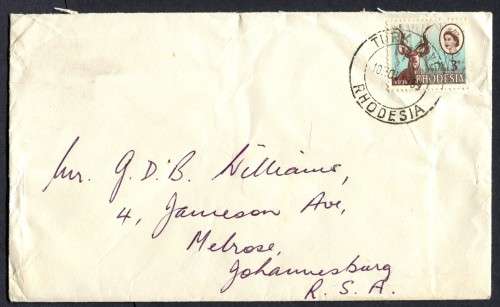 TURK
RHODESIA
3D
RHODESIA
Mr. G.D.B. Williams,
4, Jameson Ave,
Melrose,
Johannesburg
R.S.A.